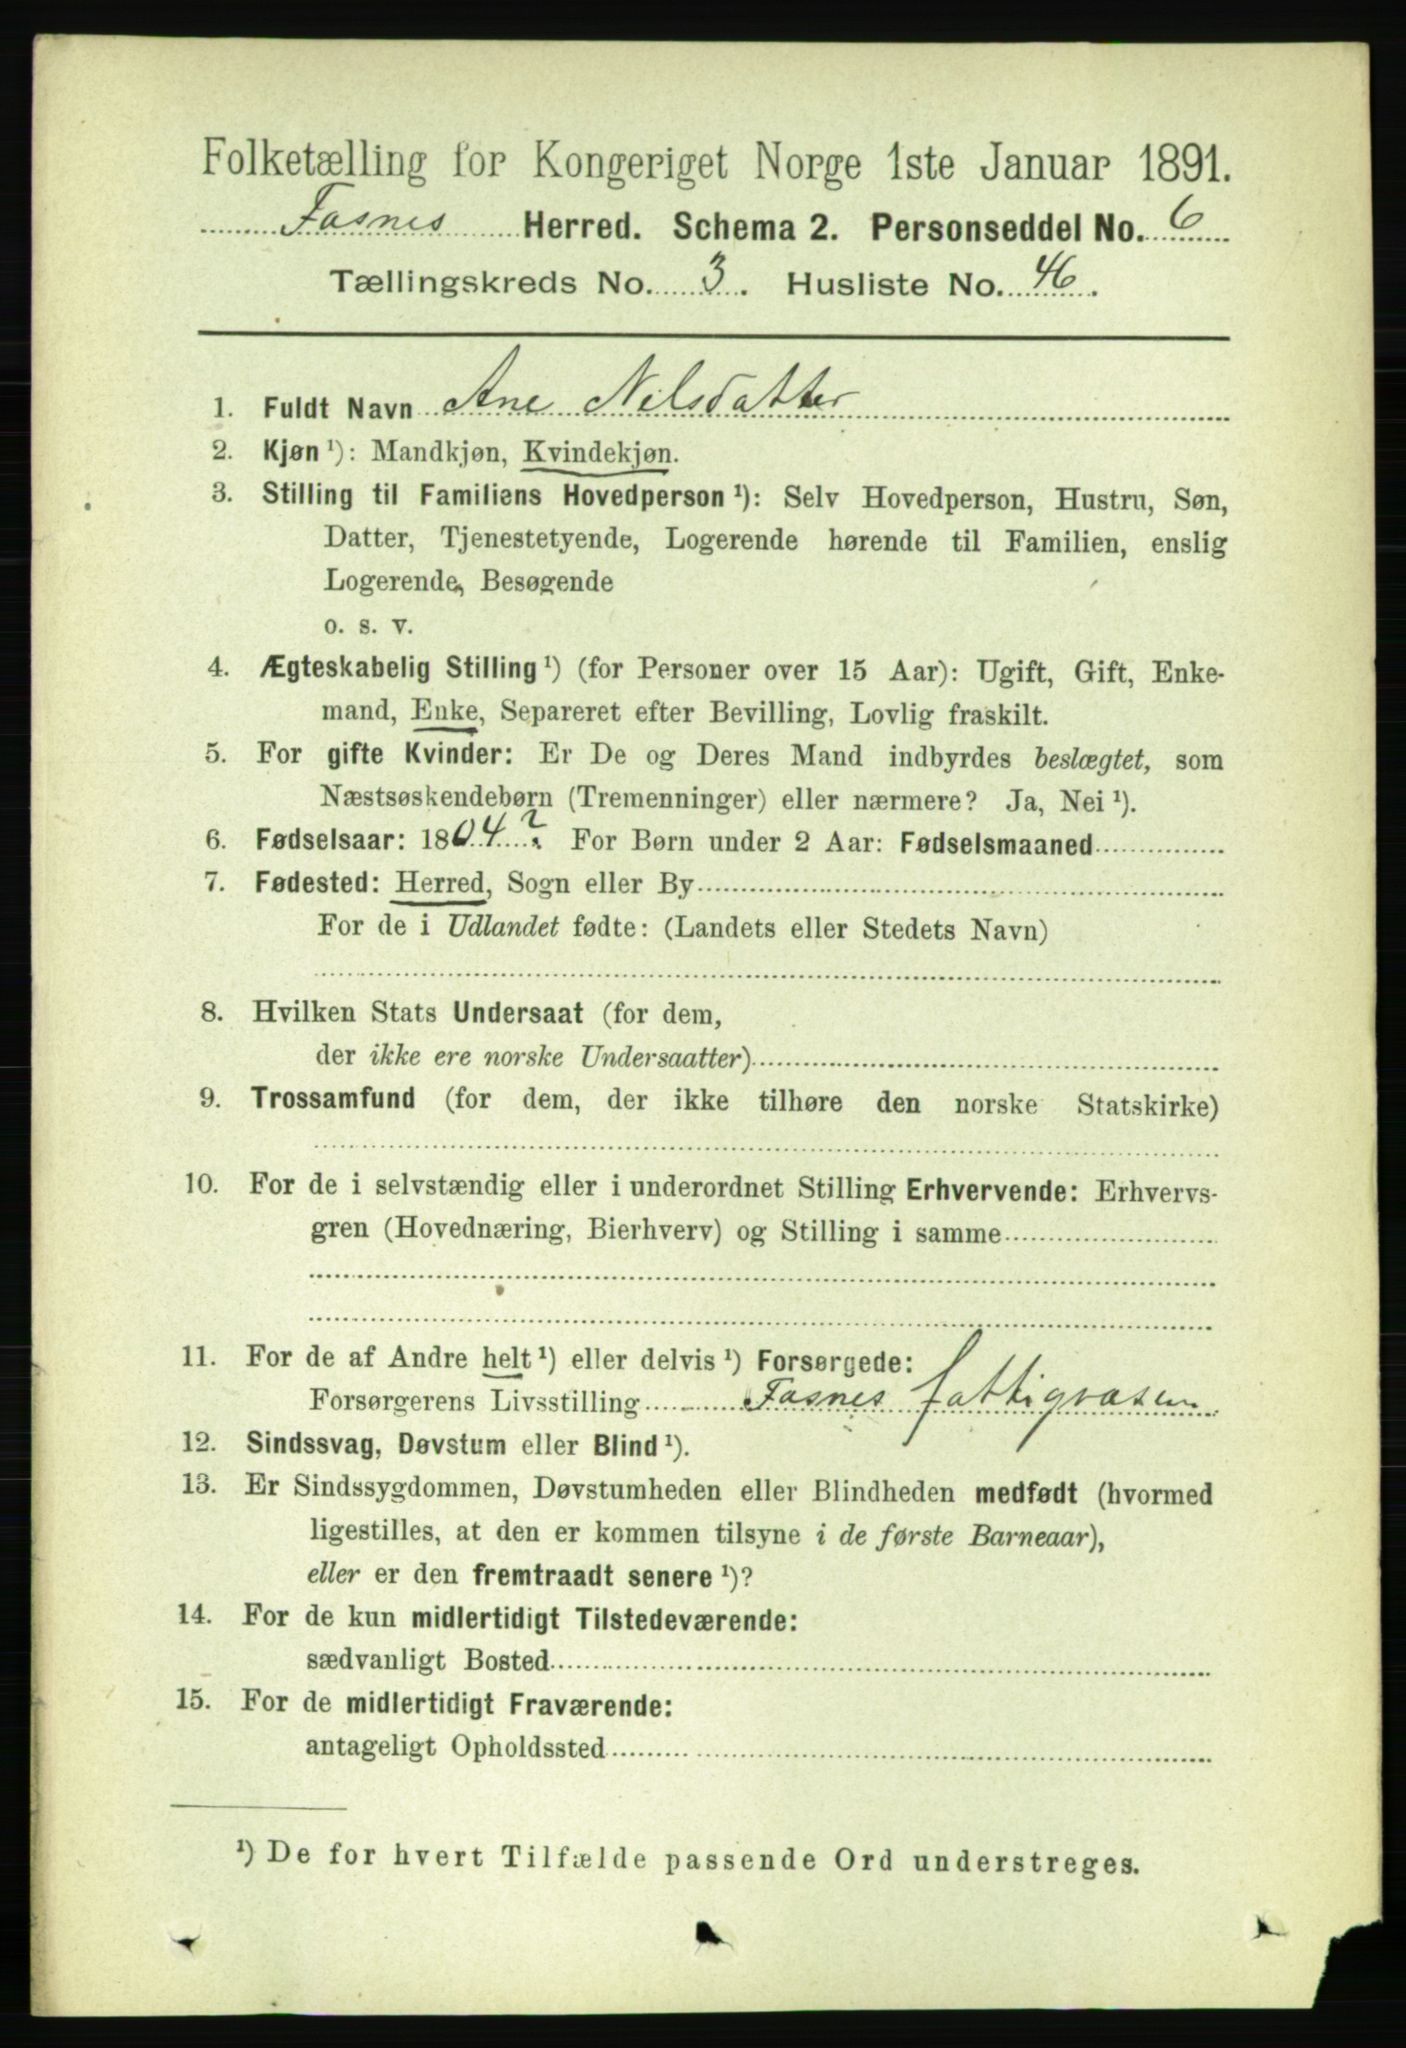 Folketælling for Kongeriget Norge 1ste Januar 1891.
Fosnes Herred. Schema 2. Personseddel No. 6
Tællingskreds No. 3. Husliste No. 46.
1. Fuldt Navn Ane Nilsdatter
2. Kjøn ¹): Mandkjøn, Kvindekjøn.
3. Stilling til Familiens Hovedperson ¹): Selv Hovedperson, Hustru, Søn,
Datter, Tjenestetyende, Logerende hørende til Familien, enslig
Logerende, Besøgende
o. s. v.
4. Ægteskabelig Stilling ¹) (for Personer over 15 Aar): Ugift, Gift, Enke-
mand, Enke, Separeret efter Bevilling, Lovlig fraskilt.
5. For gifte Kvinder: Er De og Deres Mand indbyrdes beslægtet, som
Næstsøskendebørn (Tremenninger) eller nærmere? Ja, Nei ¹).
6. Fødselsaar: 1804?. For Børn under 2 Aar: Fødselsmaaned
7. Fødested: Herred, Sogn eller By
For de i Udlandet fødte: (Landets eller Stedets Navn)
8. Hvilken Stats Undersaat (for dem,
der ikke ere norske Undersaatter)
9. Trossamfund (for dem, der ikke tilhøre den norske Statskirke)
10. For de i selvstændig eller i underordnet Stilling Erhvervende: Erhvervs-
gren (Hovednæring, Bierhverv) og Stilling i samme
11. For de af Andre helt ¹) eller delvis ¹) Forsørgede:
Forsørgerens Livsstilling Fosnes fattigvæsen
12. Sindssvag, Døvstum eller Blind ¹).
13. Er Sindssygdommen, Døvstumheden eller Blindheden medfødt (hvormed
ligestilles, at den er kommen tilsyne i de første Barneaar),
eller er den fremtraadt senere ¹)?
14. For de kun midlertidigt Tilstedeværende:
sædvanligt Bosted
15. For de midlertidigt Fraværende:
antageligt Opholdssted
¹) De for hvert Tilfælde passende Ord understreges.